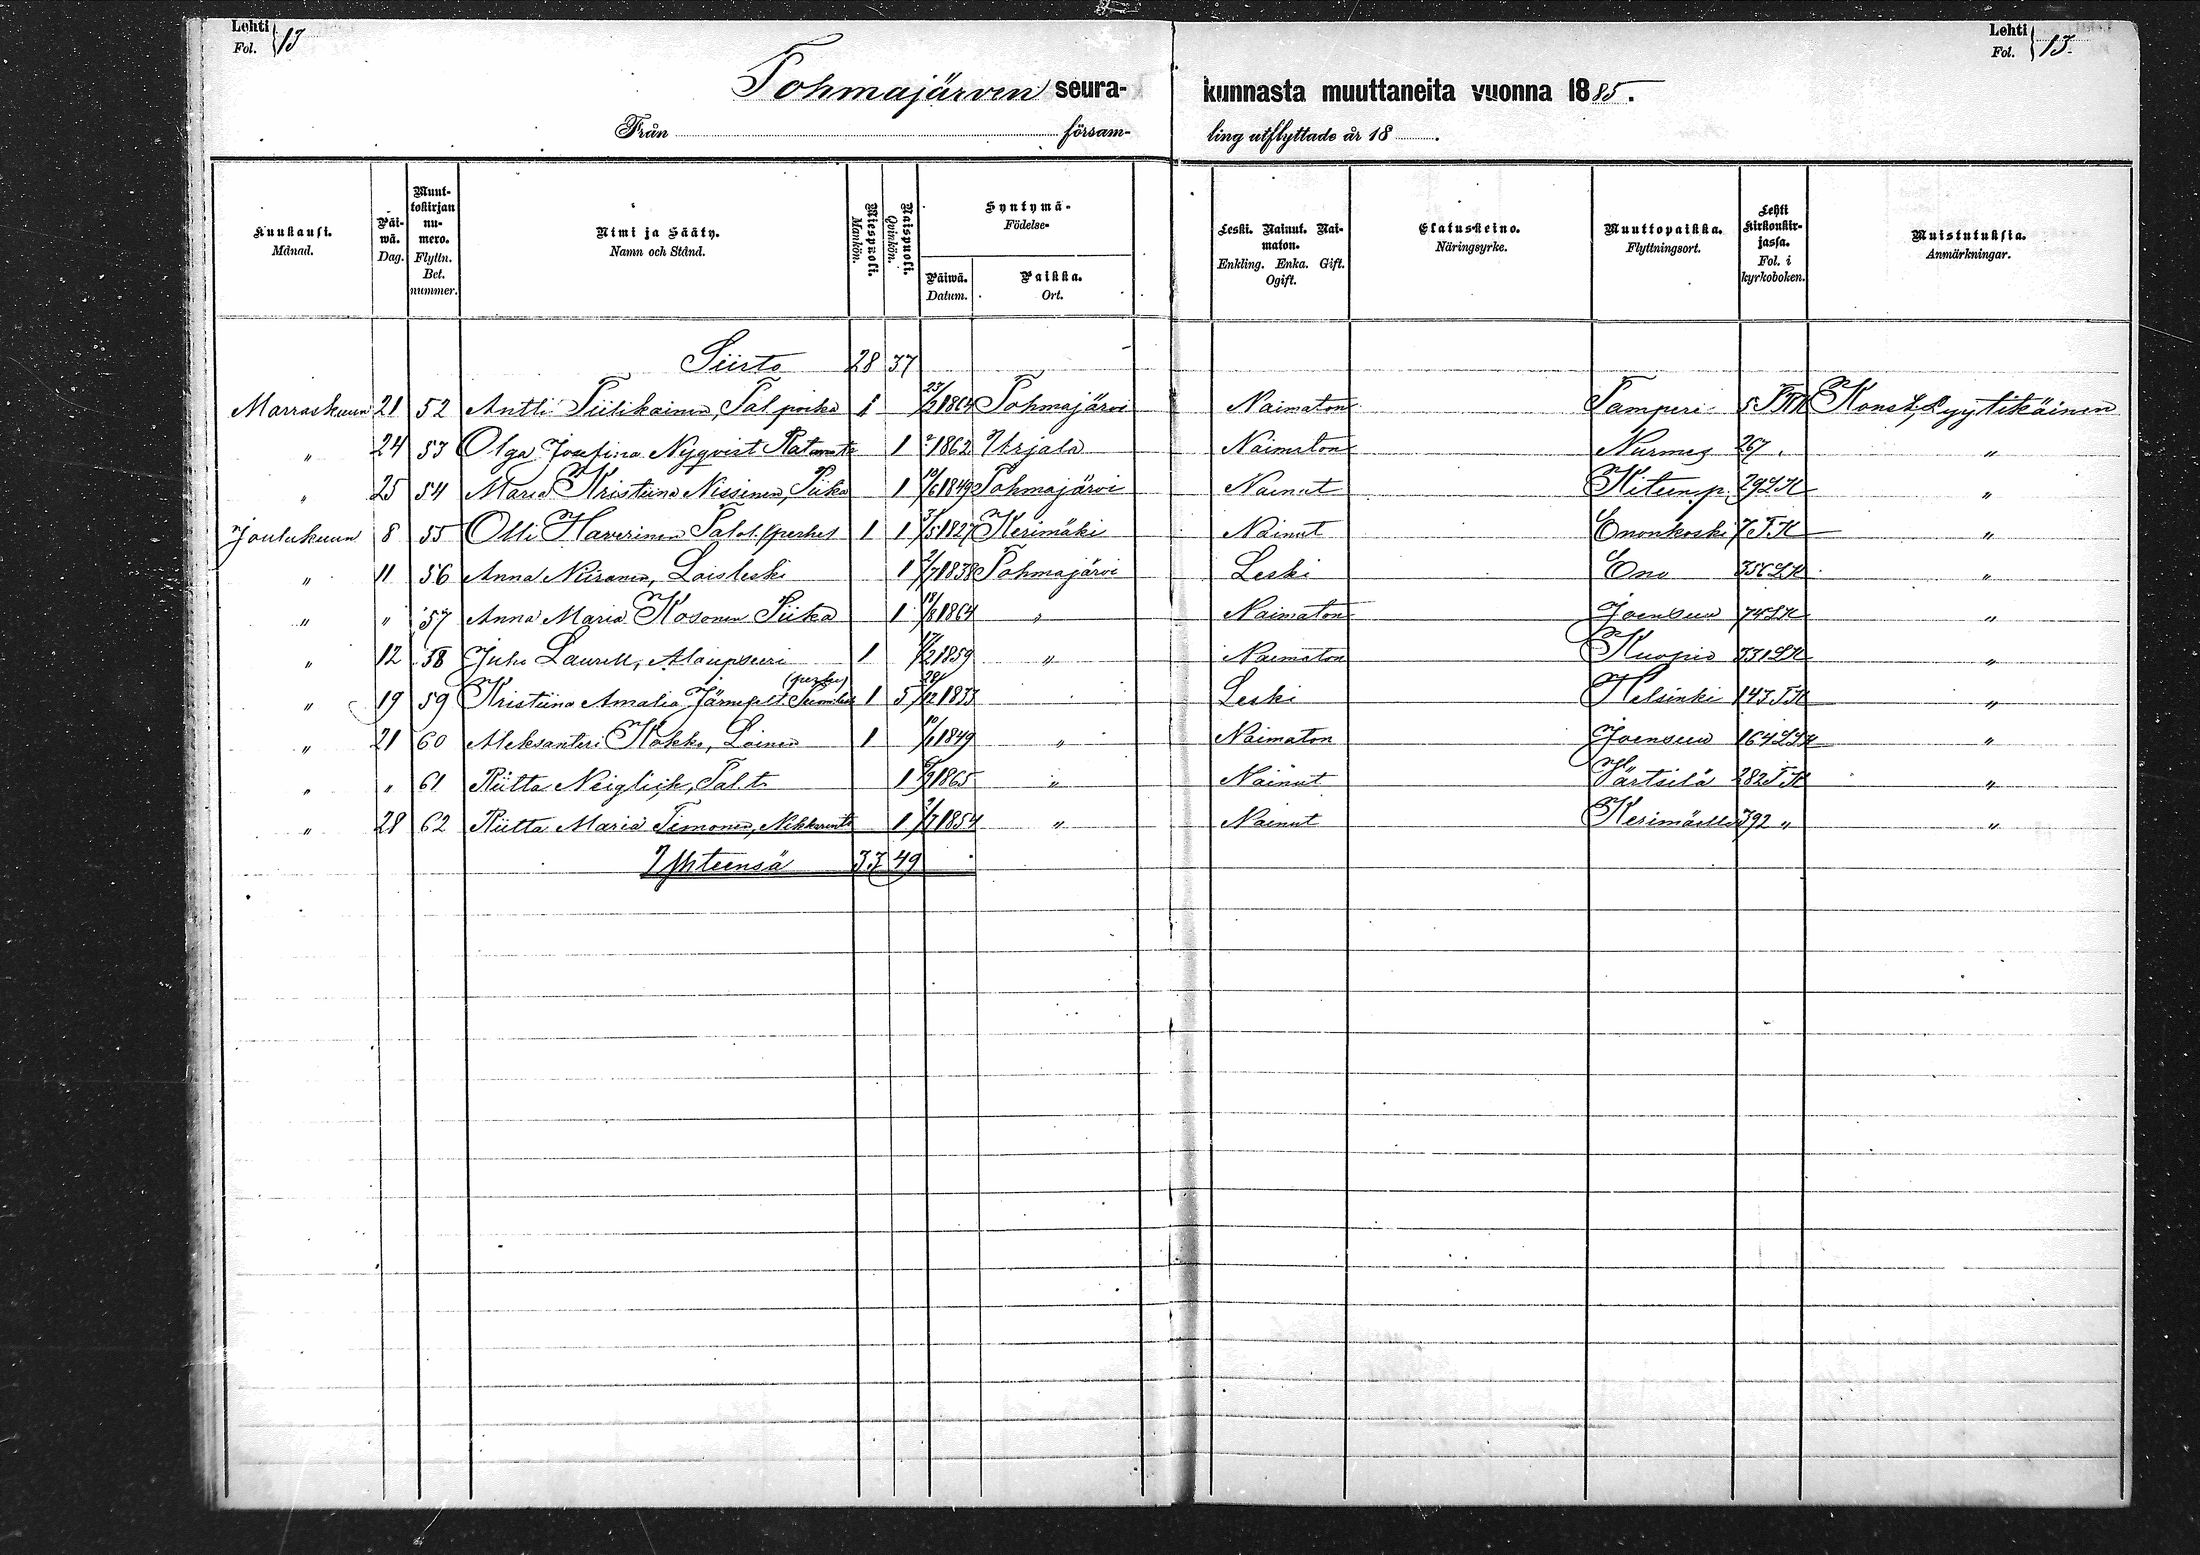 Lehti Fol. 13
Lehti Fol. 13.
Tohmajärven seurakunnasta muuttaneita vuonna 1885.
Från församling utflyttade år 18 .
Kuukausi. Månad.
Päiwä. Dag.
Muuttokirjan numero. Flyttn. Bet. nummer.
Nimi ja Sääty. Namn och Stånd.
Miespuoli. Mankön.
Naispuoli. Qvinkön.
Syntymä- Födelse-
Päiwä. Datum.
Paikka. Ort.
Leski. Nainut. Naimaton. Enkling. Enka. Gift. Ogift.
Elatuskeino. Näringsyrke.
Muuttopaikka. Flyttningsort.
Lehti kirkonkirjassa. Fol. i kyrkoboken.
Muistutuksia. Anmärkningar.
Siirto 28 37
Marraskuun 21 52 Antti Piilikainen, Tal. poika 1 23/2 1864 Tohmajärvi Naimaton Tamperi 5 Konst. Lyytikäinen
" 24 53 Olga Josefina Nyqvist 1 1862 Urjala Naimaton Nurmes 267 "
" 25 54 Maria Kristiina Nissinen, Piika 1 10/6 1849 Tohmajärvi Nainut Kiteen p. 29 LK "
Joulukuun 8 55 Olli Haverinen Talol. (perhe) 1 1 3/5 1827 Kerimäki Nainut Enonkoski 7 TK "
" 11 56 Anna Niiranen, Loisleski 1 2/7 1838 Tohmajärvi Leski Eno 356 LK "
" " 57 Anna Maria Kosonen Piika 1 18/8 1864 " Naimaton Joensuu 74 LK "
" 12 58 Juho Laurell, Alaupseeri 1 17/2 1859 " Naimaton Kuopio 331 LK "
" 19 59 Kristiina Amalia Järnefelt (perhe) 1 5 28/12 1833 Leski Helsinki 143 TK "
" 21 60 Aleksanteri Kokko, Loinen 1 10/1 1849 " Naimaton Joensuu 164 LK "
" " 61 Riitta Neiglick, Tal. t. 1 1865 " Nainut Värtsilä 282 TK "
" 28 62 Riitta Maria Timonen, 1 2/7 1854 " Nainut Kerimäelle 392 " "
Yhteensä 33 49